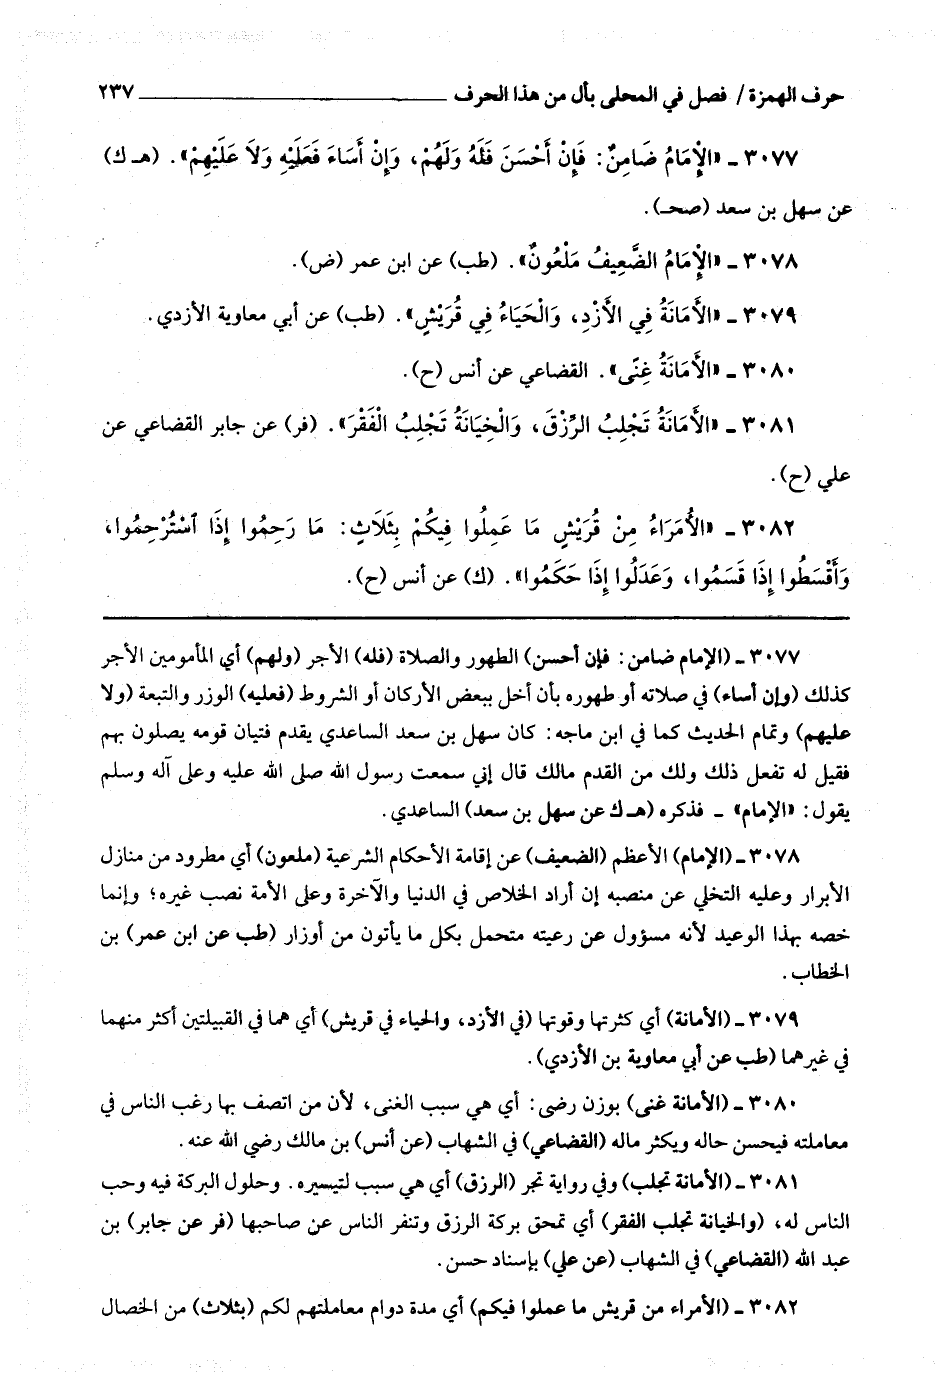 حرف الهمزة / فصل في المحلى بأل من هذا الحرف ٢٣٧
٣٠٧٧ ـ «الْإِمَامُ ضَامِنٌ: فَإِنْ أَحْسَنَ فَلَهُ وَلَهُمْ، وَإِنْ أَسَاءَ فَعَلَيْهِ وَلَا عَلَيْهِمْ». (هـ ك)
عن سهل بن سعد (صحـ).
٣٠٧٨ ـ «الْإِمَامُ الضَّعِيفُ مَلْعُونٌ». (طب) عن ابن عمر (ض).
٣٠٧٩ ـ «الْأَمَانَةُ فِي الْأَزْدِ، وَالْحَيَاءُ فِي قُرَيْشٍ». (طب) عن أبي معاوية الأزدي.
٣٠٨٠ ـ «الْأَمَانَةُ غِنًى». القضاعي عن أنس (ح).
٣٠٨١ ـ «الْأَمَانَةُ تَجْلِبُ الرِّزْقَ، وَالْخِيَانَةُ تَجْلِبُ الْفَقْرَ». (فر) عن جابر القضاعي عن
علي (ح).
٣٠٨٢ ـ «الْأُمَرَاءُ مِنْ قُرَيْشٍ مَا عَمِلُوا فِيكُمْ بِثَلَاثٍ: مَا رَحِمُوا إِذَا ٱسْتُرْحِمُوا،
وَأَقْسَطُوا إِذَا قَسَمُوا، وَعَدَلُوا إِذَا حَكَمُوا». (ك) عن أنس (ح).
٣٠٧٧ ـ (الإمام ضامن: فإن أحسن) الطهور والصلاة (فله) الأجر (ولهم) أي المأمومين الأجر
كذلك (وإن أساء) في صلاته أو طهوره بأن أخل ببعض الأركان أو الشروط (فعليه) الوزر والتبعة (ولا
عليهم) وتمام الحديث كما في ابن ماجه: كان سهل بن سعد الساعدي يقدم فتيان قومه يصلون بهم
فقيل له تفعل ذلك ولك من القدم مالك قال إني سمعت رسول الله صلى الله عليه وعلى آله وسلم
يقول: «الإمام» ـ فذكره (هـ ك عن سهل بن سعد) الساعدي.
٣٠٧٨ ـ (الإمام) الأعظم (الضعيف) عن إقامة الأحكام الشرعية (ملعون) أي مطرود من منازل
الأبرار وعليه التخلي عن منصبه إن أراد الخلاص في الدنيا والآخرة وعلى الأمة نصب غيره؛ وإنما
خصه بهذا الوعيد لأنه مسؤول عن رعيته متحمل بكل ما يأتون من أوزار (طب عن ابن عمر) بن
الخطاب.
٣٠٧٩ ـ (الأمانة) أي كثرتها وقوتها (في الأزد، والحياء في قريش) أي هما في القبيلتين أكثر منهما
في غيرهما (طب عن أبي معاوية بن الأزدي).
٣٠٨٠ ـ (الأمانة غنى) بوزن رضى: أي هي سبب الغنى، لأن من اتصف بها رغب الناس في
معاملته فيحسن حاله ويكثر ماله (القضاعي) في الشهاب (عن أنس) بن مالك رضي الله عنه.
٣٠٨١ ـ (الأمانة تجلب) وفي رواية تجر (الرزق) أي هي سبب لتيسيره. وحلول البركة فيه وحب
الناس له، (والخيانة تجلب الفقر) أي تمحق بركة الرزق وتنفر الناس عن صاحبها (فر عن جابر) بن
عبد الله (القضاعي) في الشهاب (عن علي) بإسناد حسن.
٣٠٨٢ ـ (الأمراء من قريش ما عملوا فيكم) أي مدة دوام معاملتهم لكم (بثلاث) من الخصال